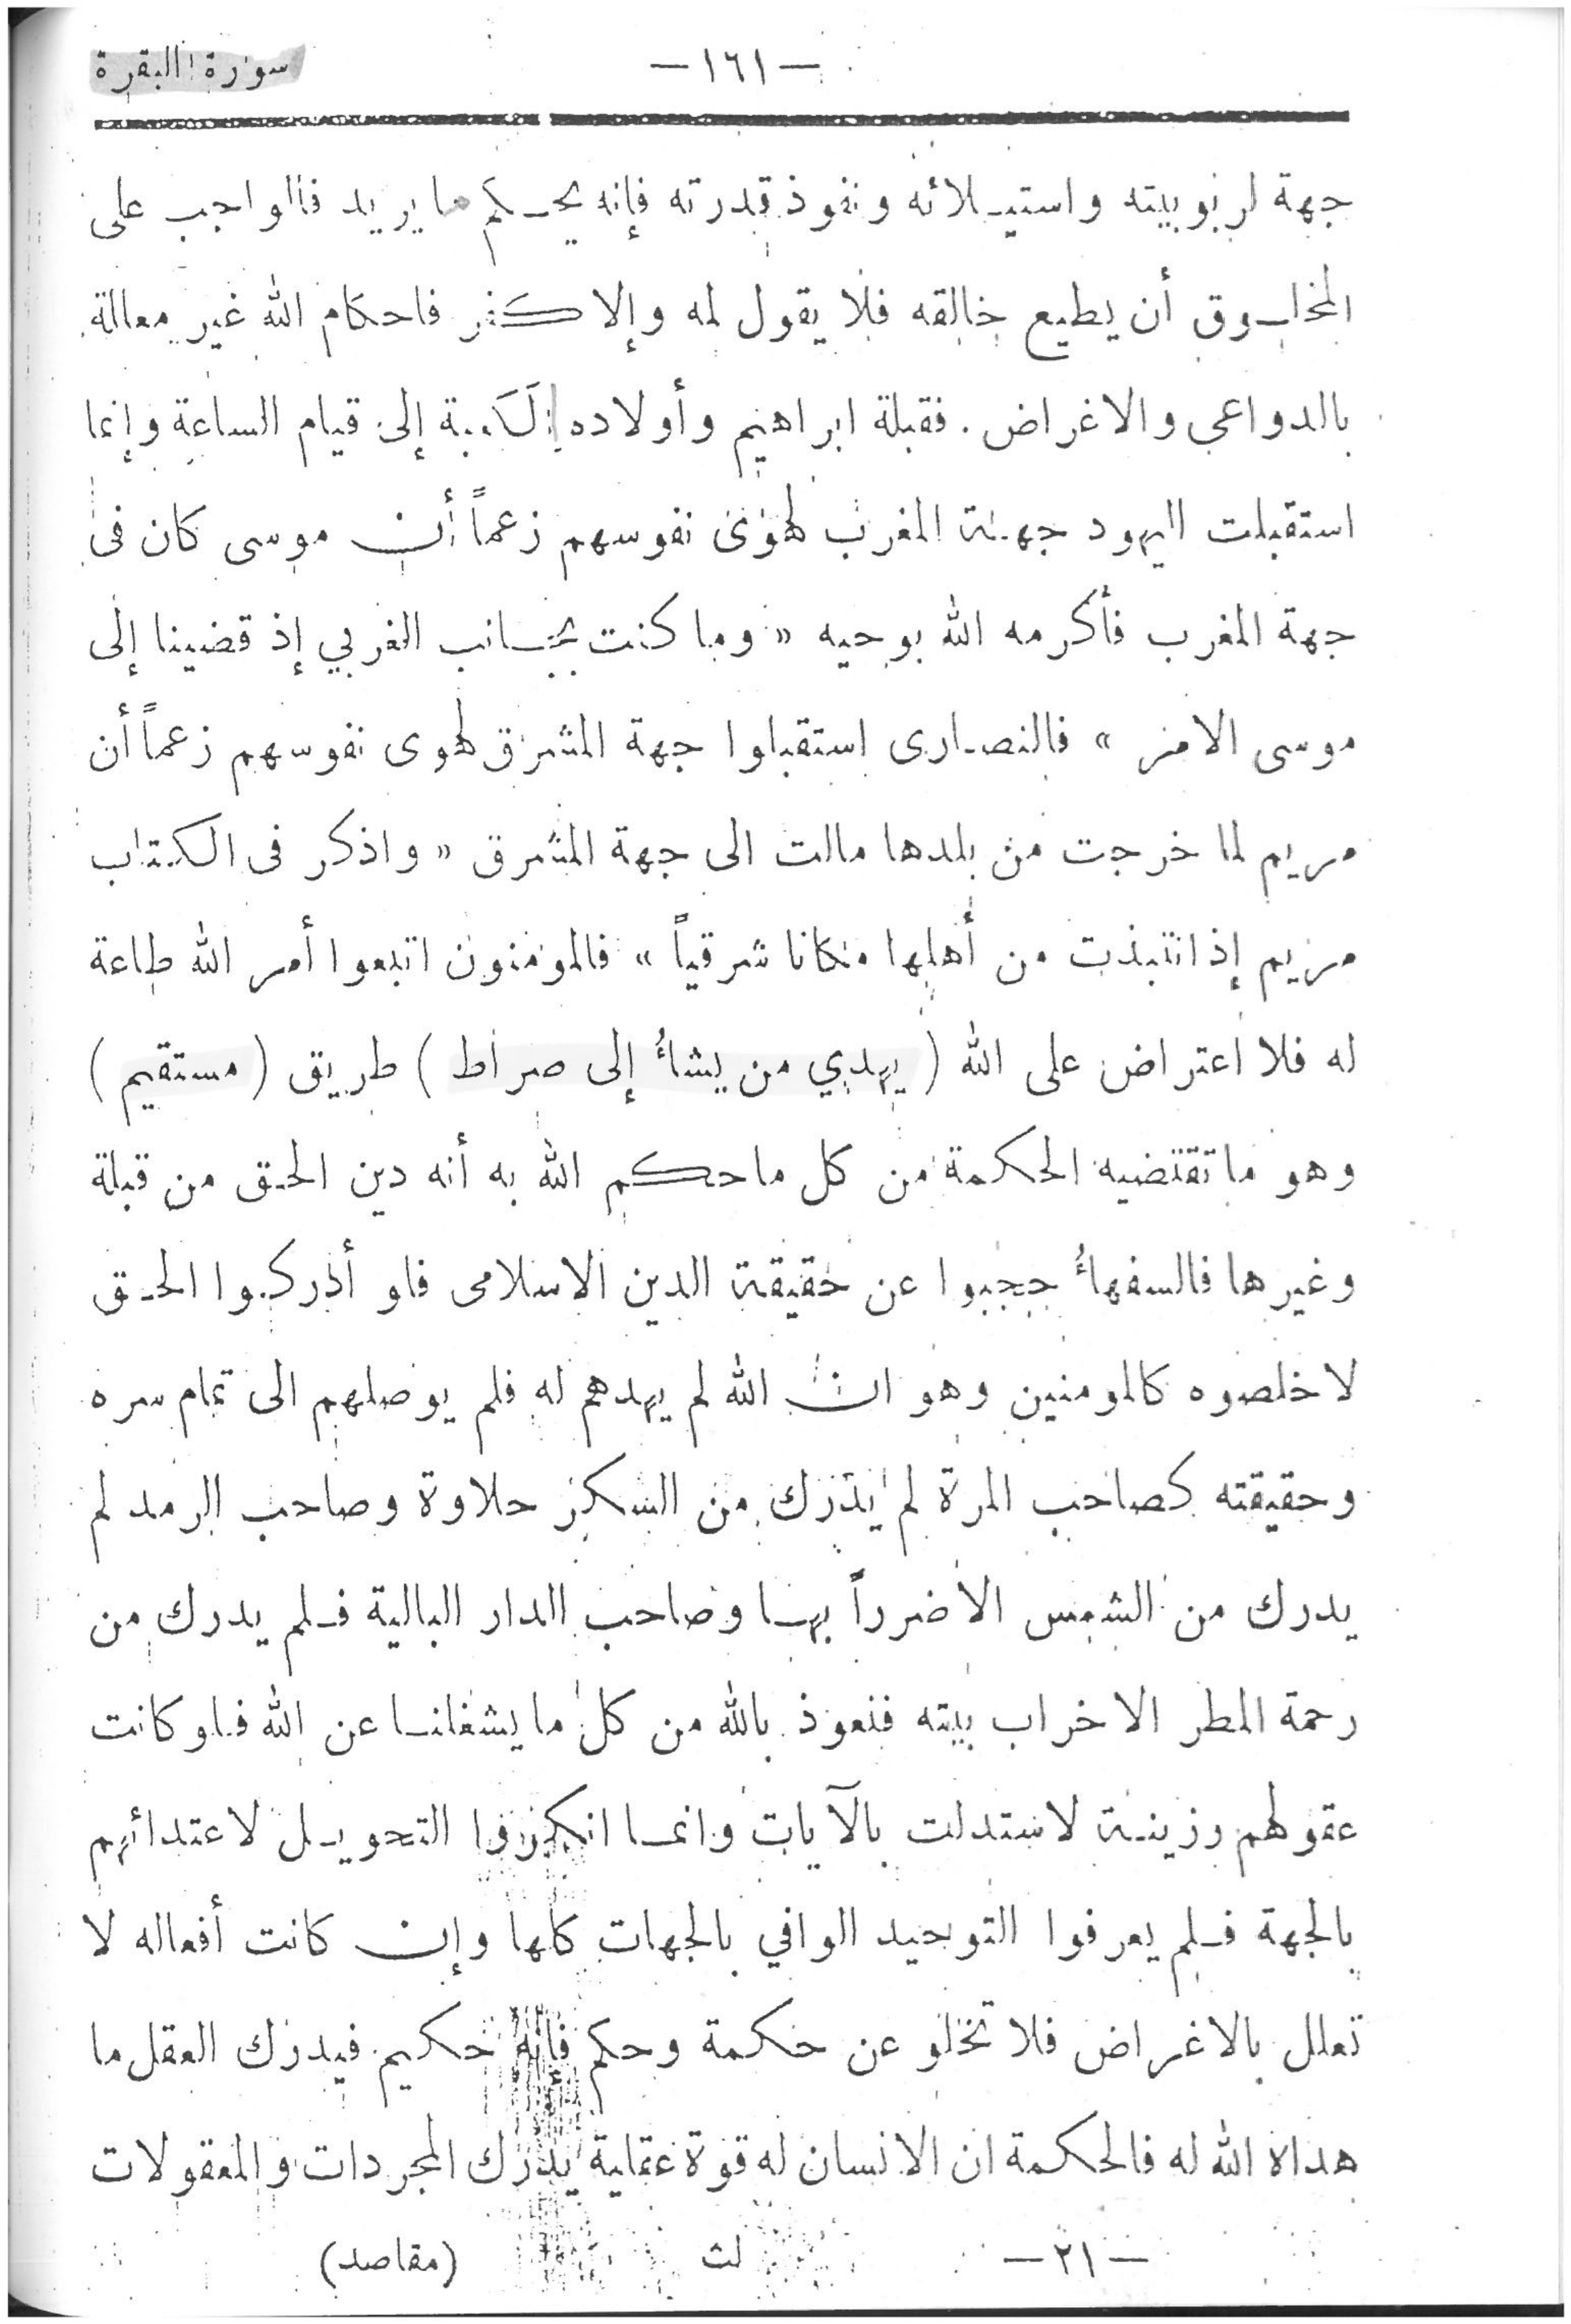 سورة البقرة
— ١٦١ —
جهة لربوبيته واستيلائه ونفوذ قدرته فإنه يحكم ما يريد فالواجب على
المخلوق أن يطيع خالقه فلا يقول لمه وإلا كفر فاحكام الله غير معللة
بالدواعى والاغراض . فقبلة ابراهيم وأولاده الكعبة إلى قيام الساعة وإنما
استقبلت اليهود جهة المغرب لهوى نفوسهم زعماً أن موسى كان فى
جهة المغرب فأكرمه الله بوحيه « وما كنت بجانب الغربي إذ قضينا إلى
موسى الامر » فالنصارى استقبلوا جهة المشرق لهوى نفوسهم زعماً أن
مريم لما خرجت من بلدها مالت الى جهة المشرق « واذكر فى الكتاب
مريم إذ انتبذت من أهلها مكانا شرقياً » فالمومنون اتبعوا أمر الله طاعة
له فلا اعتراض على الله ( يهدي من يشاءُ إلى صراط ) طريق ( مستقيم )
وهو ما تقتضيه الحكمة من كل ما حكم الله به أنه دين الحق من قبلة
وغيرها فالسفهاءُ حجبوا عن حقيقة الدين الاسلامى فلو أدركوا الحق
لاخلصوه كالمومنين وهو ان الله لم يهدهم له فلم يوصلهم الى تمام سره
وحقيقته كصاحب المرة لم يدرك من السكر حلاوة وصاحب الرمد لم
يدرك من الشمس الاضرراً بها وصاحب الدار البالية فلم يدرك من
رحمة المطر الاخراب بيته فنعوذ بالله من كل ما يشغلنا عن الله فلو كانت
عقولهم رزينة لاستدلت بالآيات وانما انكروا التحويل لاعتدائهم
بالجهة فلم يعرفوا التوحيد الوافي بالجهات كلها وإن كانت أفعاله لا
تعلل بالاغراض فلا تخلو عن حكمة وحكم فانه حكيم فيدرك العقل ما
هداه الله له فالحكمة ان الانسان له قوة عقلية يدرك المجردات والمعقولات
— ٢١ — لث (مقاصد)